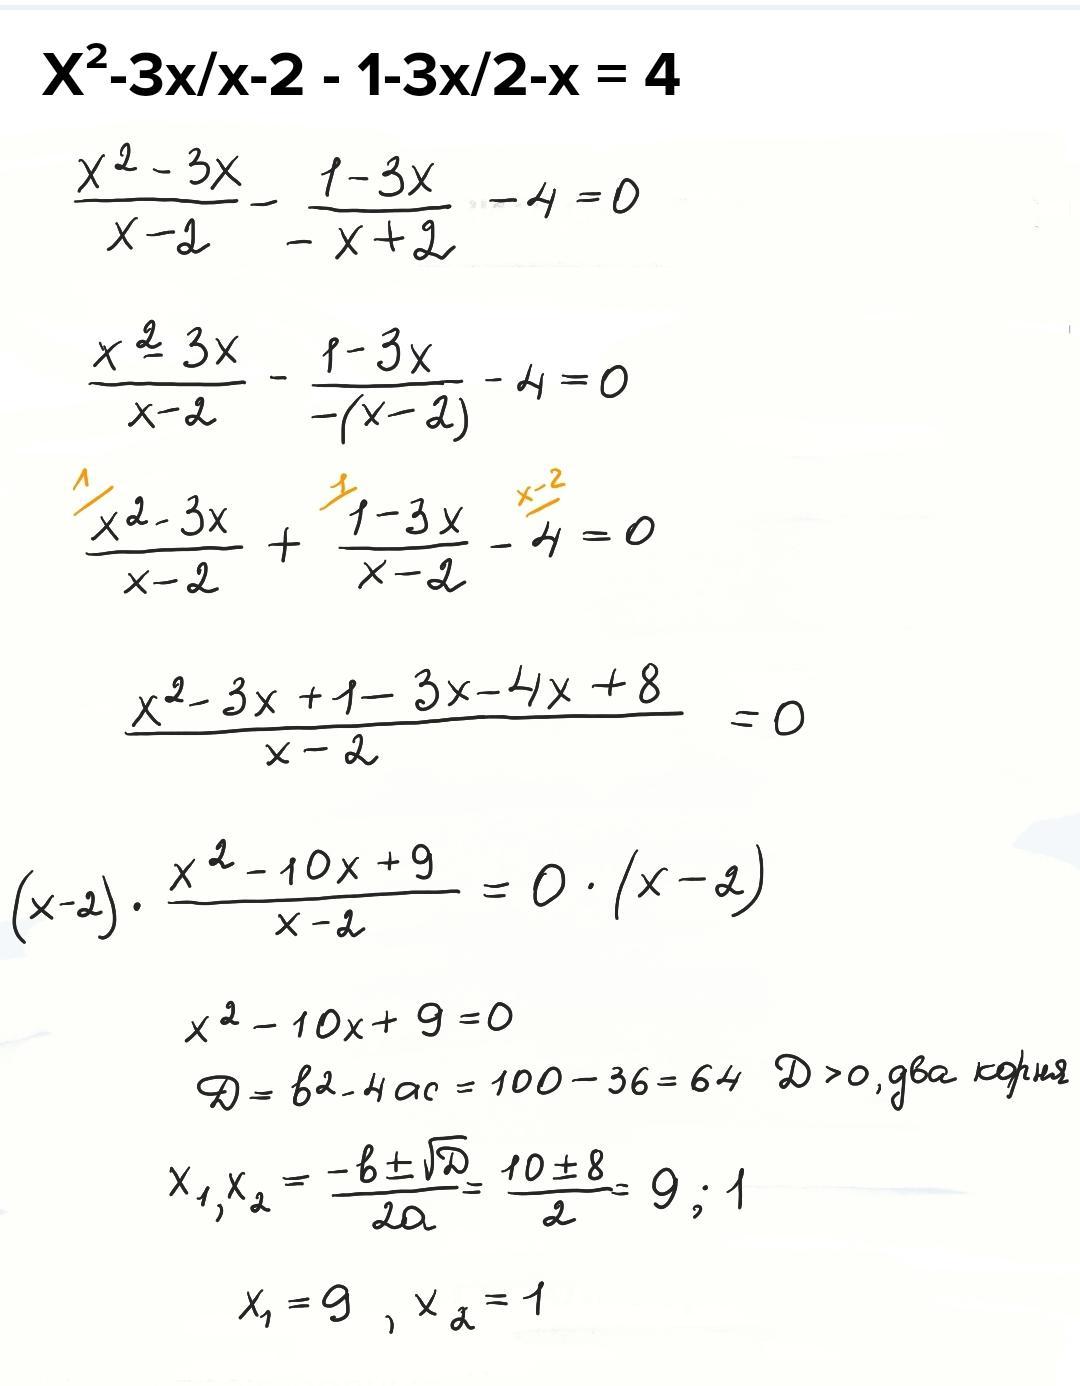 X²-3x/x-2 - 1-3x/2-x = 4
(x² - 3x)/(x - 2) - (1 - 3x)/(-x + 2) - 4 = 0
(x² - 3x)/(x - 2) - (1 - 3x)/(-(x - 2)) - 4 = 0
1/ 1/ x-2/
(x² - 3x)/(x - 2) + (1 - 3x)/(x - 2) - 4 = 0
(x² - 3x + 1 - 3x - 4x + 8)/(x - 2) = 0
(x-2) · (x² - 10x + 9)/(x - 2) = 0 · (x - 2)
x² - 10x + 9 = 0
D = b² - 4ac = 100 - 36 = 64 D > 0, два корня
x₁, x₂ = (-b ± √D)/(2a) = (10 ± 8)/2 = 9 ; 1
x₁ = 9 , x₂ = 1